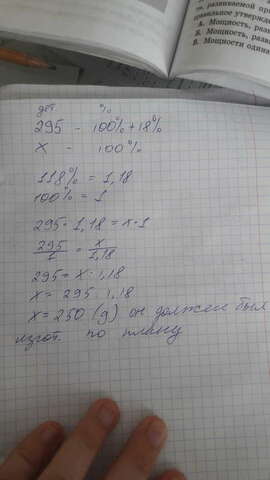 го, развиваемой про
правильное утвержде
А. Мощность, разв
Б. Мощность, разв
В. Мощности одина
дет %
295 - 100% + 18%
х - 100%
118% = 1,18
100% = 1
295 · 1,18 = х · 1
295/1 = х/1,18
295 = х · 1,18
х = 295 : 1,18
х = 250 (д) он должен был
изгот. по плану